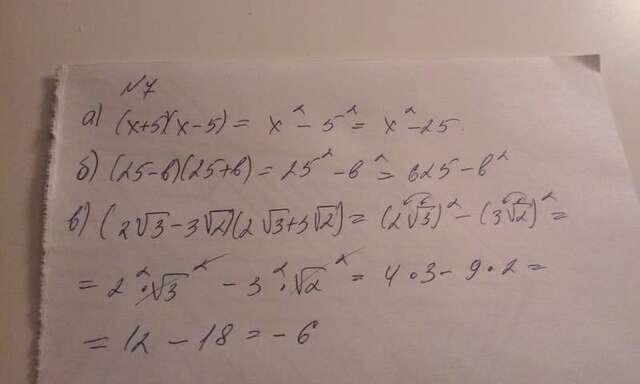 №7
а) (x+5)(x-5) = x² - 5² = x² - 25.
б) (25-в)(25+в) = 25² - в² = 625 - в²
в) (2√3 - 3√2)(2√3 + 3√2) = (2√3)² - (3√2)² =
= 2² · √3² - 3² · √2² = 4 · 3 - 9 · 2 =
= 12 - 18 = -6